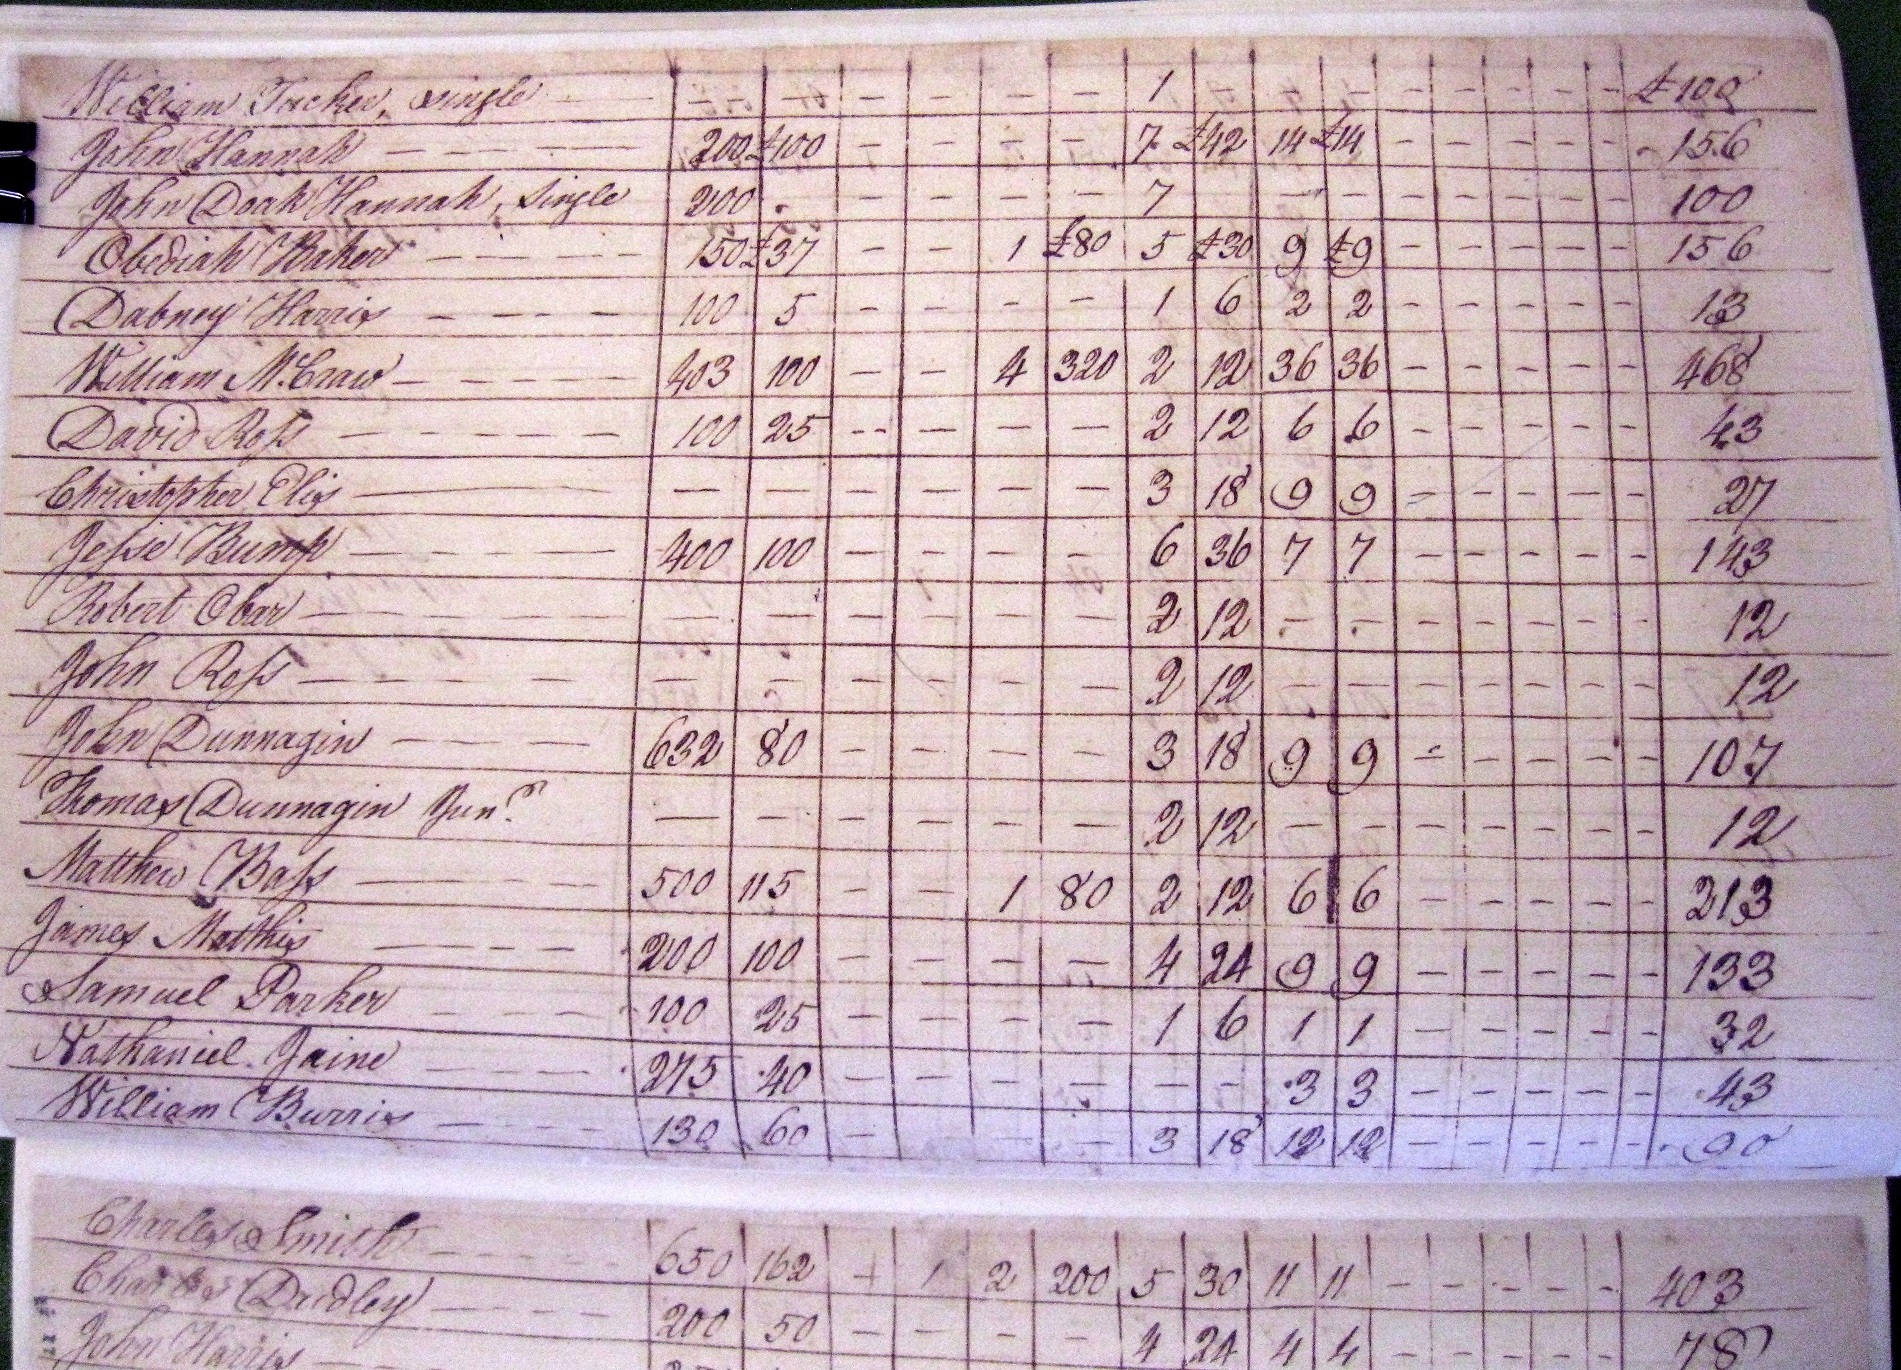 William Tucker, single - - - - - 1 - - - - - - - £100
John Hannah - - - - 200 £100 - - - - 7 £42 14 £14 - - - - - 156
John Doak Hannah, single 200 - - - - 7 - - - - - - - 100
Obediah Baker - - - - 150 £37 - - 1 £80 5 £30 9 £9 - - - - - 156
Dabney Harris - - - - 100 5 - - - - 1 6 2 2 - - - - - 13
William McCraw - - - - 403 100 - - 4 320 2 12 36 36 - - - - - 468
David Ross - - - - - 100 25 - - - - 2 12 6 6 - - - - - 43
Christopher Elis - - - - - - - - - - 3 18 9 9 - - - - - 27
Jesse Bump - - - - 400 100 - - - - 6 36 7 7 - - - - - 143
Robert Obar - - - - - - - - - - 2 12 - - - - - - - 12
John Ross - - - - - - - - - - 2 12 - - - - - - - 12
John Dunnagin - - - - 632 80 - - - - 3 18 9 9 - - - - - 107
Thomas Dunnagin Junr - - - - - - 2 12 - - - - - - - 12
Matthew Bass - - - - 500 115 - - 1 80 2 12 6 6 - - - - - 213
James Mathis - - - - 200 100 - - - - 4 24 9 9 - - - - - 133
Samuel Parker - - - - 100 25 - - - - 1 6 1 1 - - - - - 32
Nathaniel Jaine - - - - 275 40 - - - - - - 3 3 - - - - - 43
William Burris - - - - 130 60 - - - 3 18 12 12 - - - - - 90
Charles Smith - - - - 650 162 - 1 2 200 5 30 11 11 - - - - - 403
Charles Dudley - - - - 200 50 - - - - 4 24 4 4 - - - - - 78
John Harris